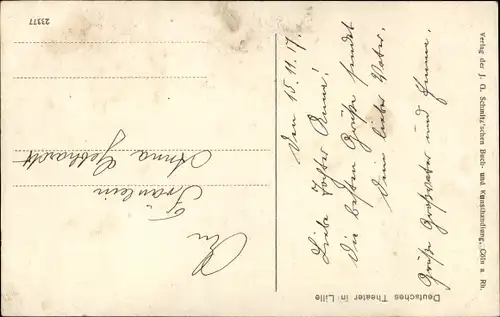 Den 15.11.17.
Liebe Tochter Anna!
Die besten Grüße sendet
Dein lieber Vater.
Grüße Großvater und Emma.
An
Fräulein
Anna Gebhardt
Deutsches Theater in Lille
Verlag der J. G. Schmitz'schen Buch- und Kunsthandlung, Cöln a. Rh.
23377